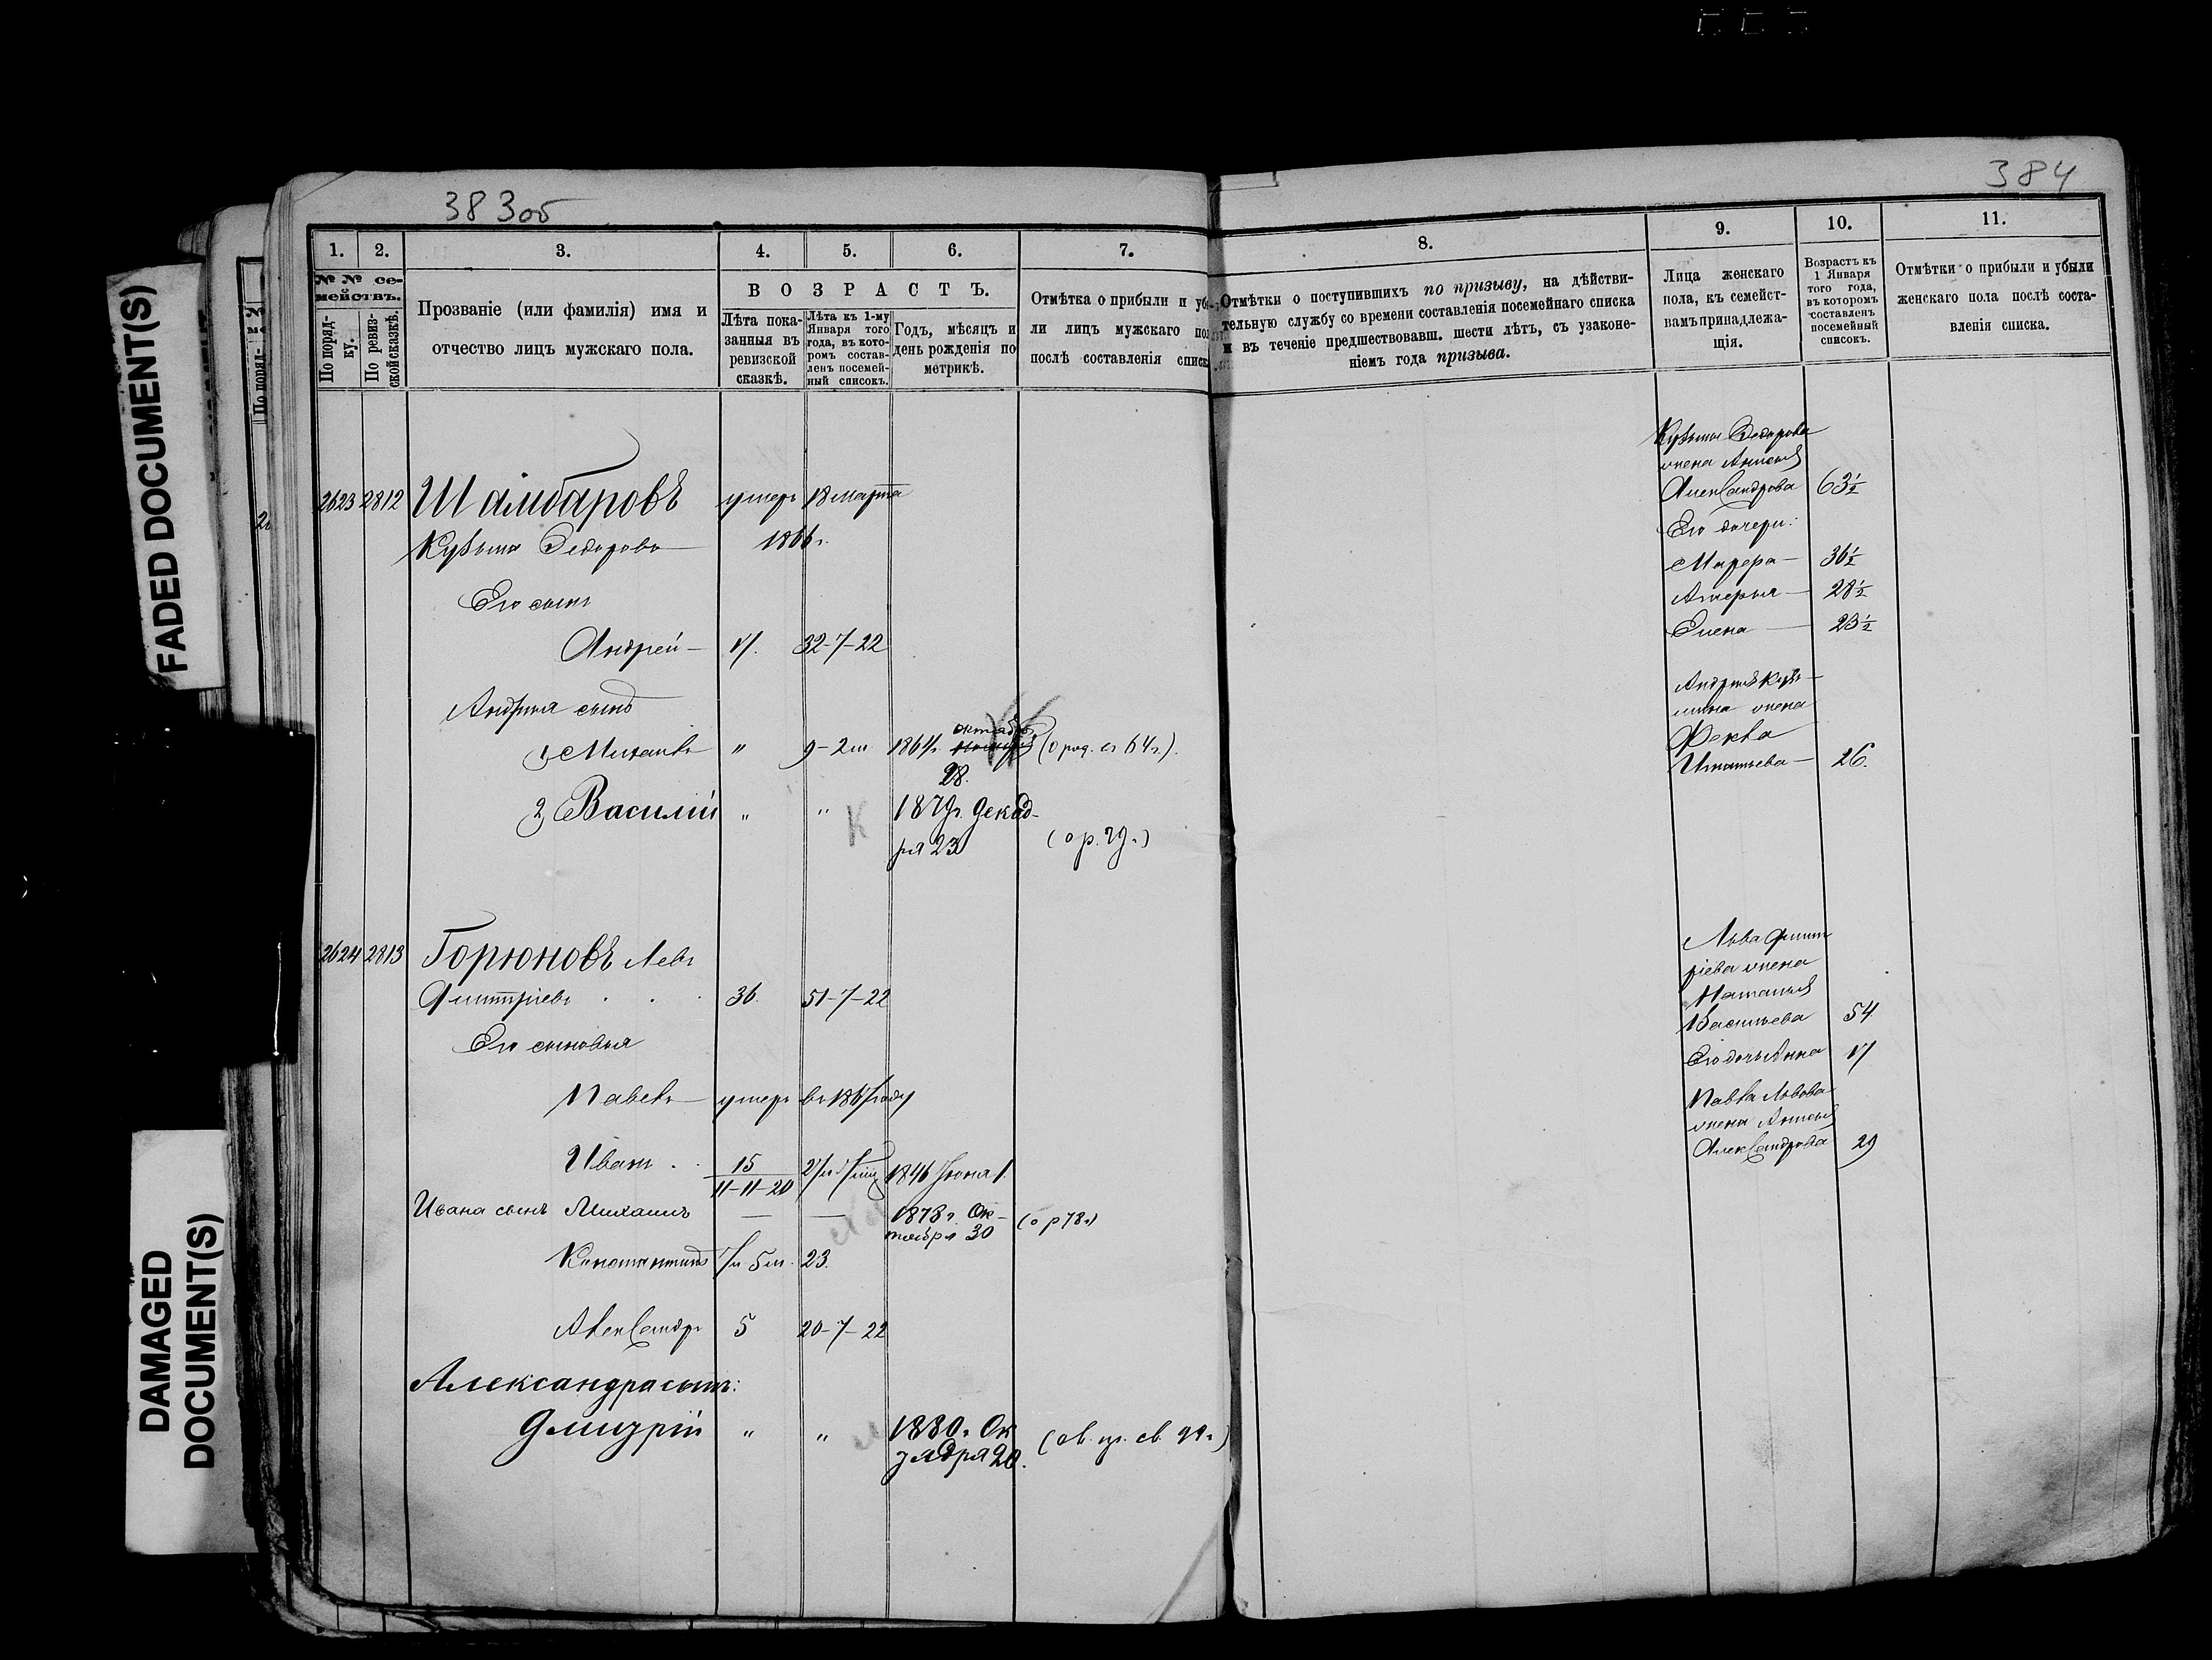 FADED DOCUMENT(S)
DAMAGED
DOCUMENT(S)
383об
1.
2.
3.
4.
5.
6.
7.
№ № се-
мействъ.
По поряд-
ку.
По ревиз-
ской сказкѣ.
Прозваніе (или фамилія) имя и
отчество лицъ мужскаго пола.
ВОЗРАСТЪ.
Лѣта пока-
занныя въ
ревизской
сказкѣ.
Лѣта къ 1-му
Января того
года, въ кото-
ромъ состав-
ленъ посемей-
ный списокъ.
Годъ, мѣсяцъ и
день рожденія по
метрикѣ.
Отмѣтка о прибыли и убы-
ли лицъ мужскаго пол
послѣ составленія списк
2623 2812 Шамбаровъ умеръ 18 марта
Кузьма Федоровъ 1866 г.
Его сынъ
Андрей 17. 32-7-22
Андрея сынъ
октября
1, Михаилъ " 9-2 м 1864 г. (о род. съ 64 г.).
28.
2, Василій " " К 1879 г. Декаб-
ря 23 (о р. 79 г.)
2624 2813 Горюновъ Левъ
Дмитріевъ 36. 51-7-22
Его сыновья
Павелъ умеръ въ 1867 году
Иванъ 15 1846 Іюня 1.
11-11-20
Ивана сынъ Михаилъ — — 1878 г. Ок-
тября 30 (о р 78 г)
Константинъ 7 л 5 м. 23.
Александръ 5 20-7-22
Александра сынъ:
Дмитрій " " 1880 г. Ок
тября 20.
384
8.
9.
10.
11.
Отмѣтки о поступившихъ по призыву, на дѣйстви-
тельную службу со времени составленія посемейнаго списка
и въ теченіе предшествовавш. шести лѣтъ, съ узаконе-
ніемъ года призыва.
Лица женскаго
пола, къ семейст-
вамъ принадлежа-
щія.
Возрастъ къ
1 Января
того года,
въ которомъ
составленъ
посемейный
списокъ.
Отмѣтки о прибыли и убыли
женскаго пола послѣ соста-
вленія списка.
Кузьмы Федорова
жена Анисья
Александрова 63½
Его дочери:
Марѳа 36½
28½
Елена 23½
Андрея Кузь-
мина жена
Фекла
Игнатьева 26.
Льва Дмит
ріева жена
Наталья
Васильева 54
Его дочь Анна 17
Павла Львова
жена Анисья
Александрова 29